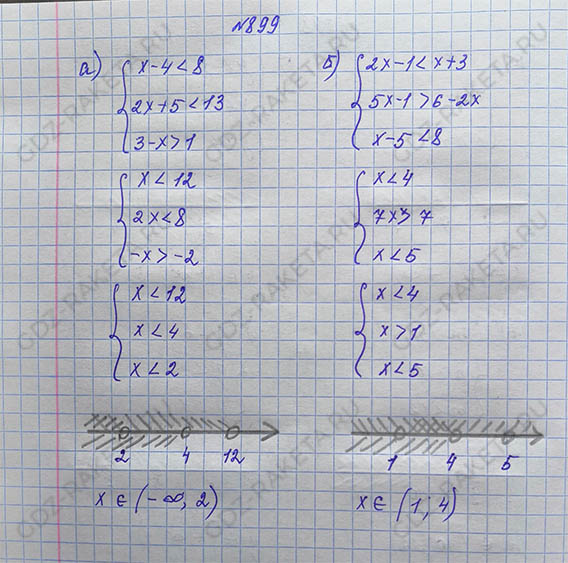 №899
а) { x-4<8
2x+5<13
3-x>1
{ x<12
2x<8
-x>-2
{ x<12
x<4
x<2
2 4 12
x ∈ (-∞, 2)
б) { 2x-1<x+3
5x-1>6-2x
x-5<8
{ x<4
7x>7
x<5
{ x<4
x>1
x<5
1 4 5
x ∈ (1; 4)
GDZ-RAKETA.RU